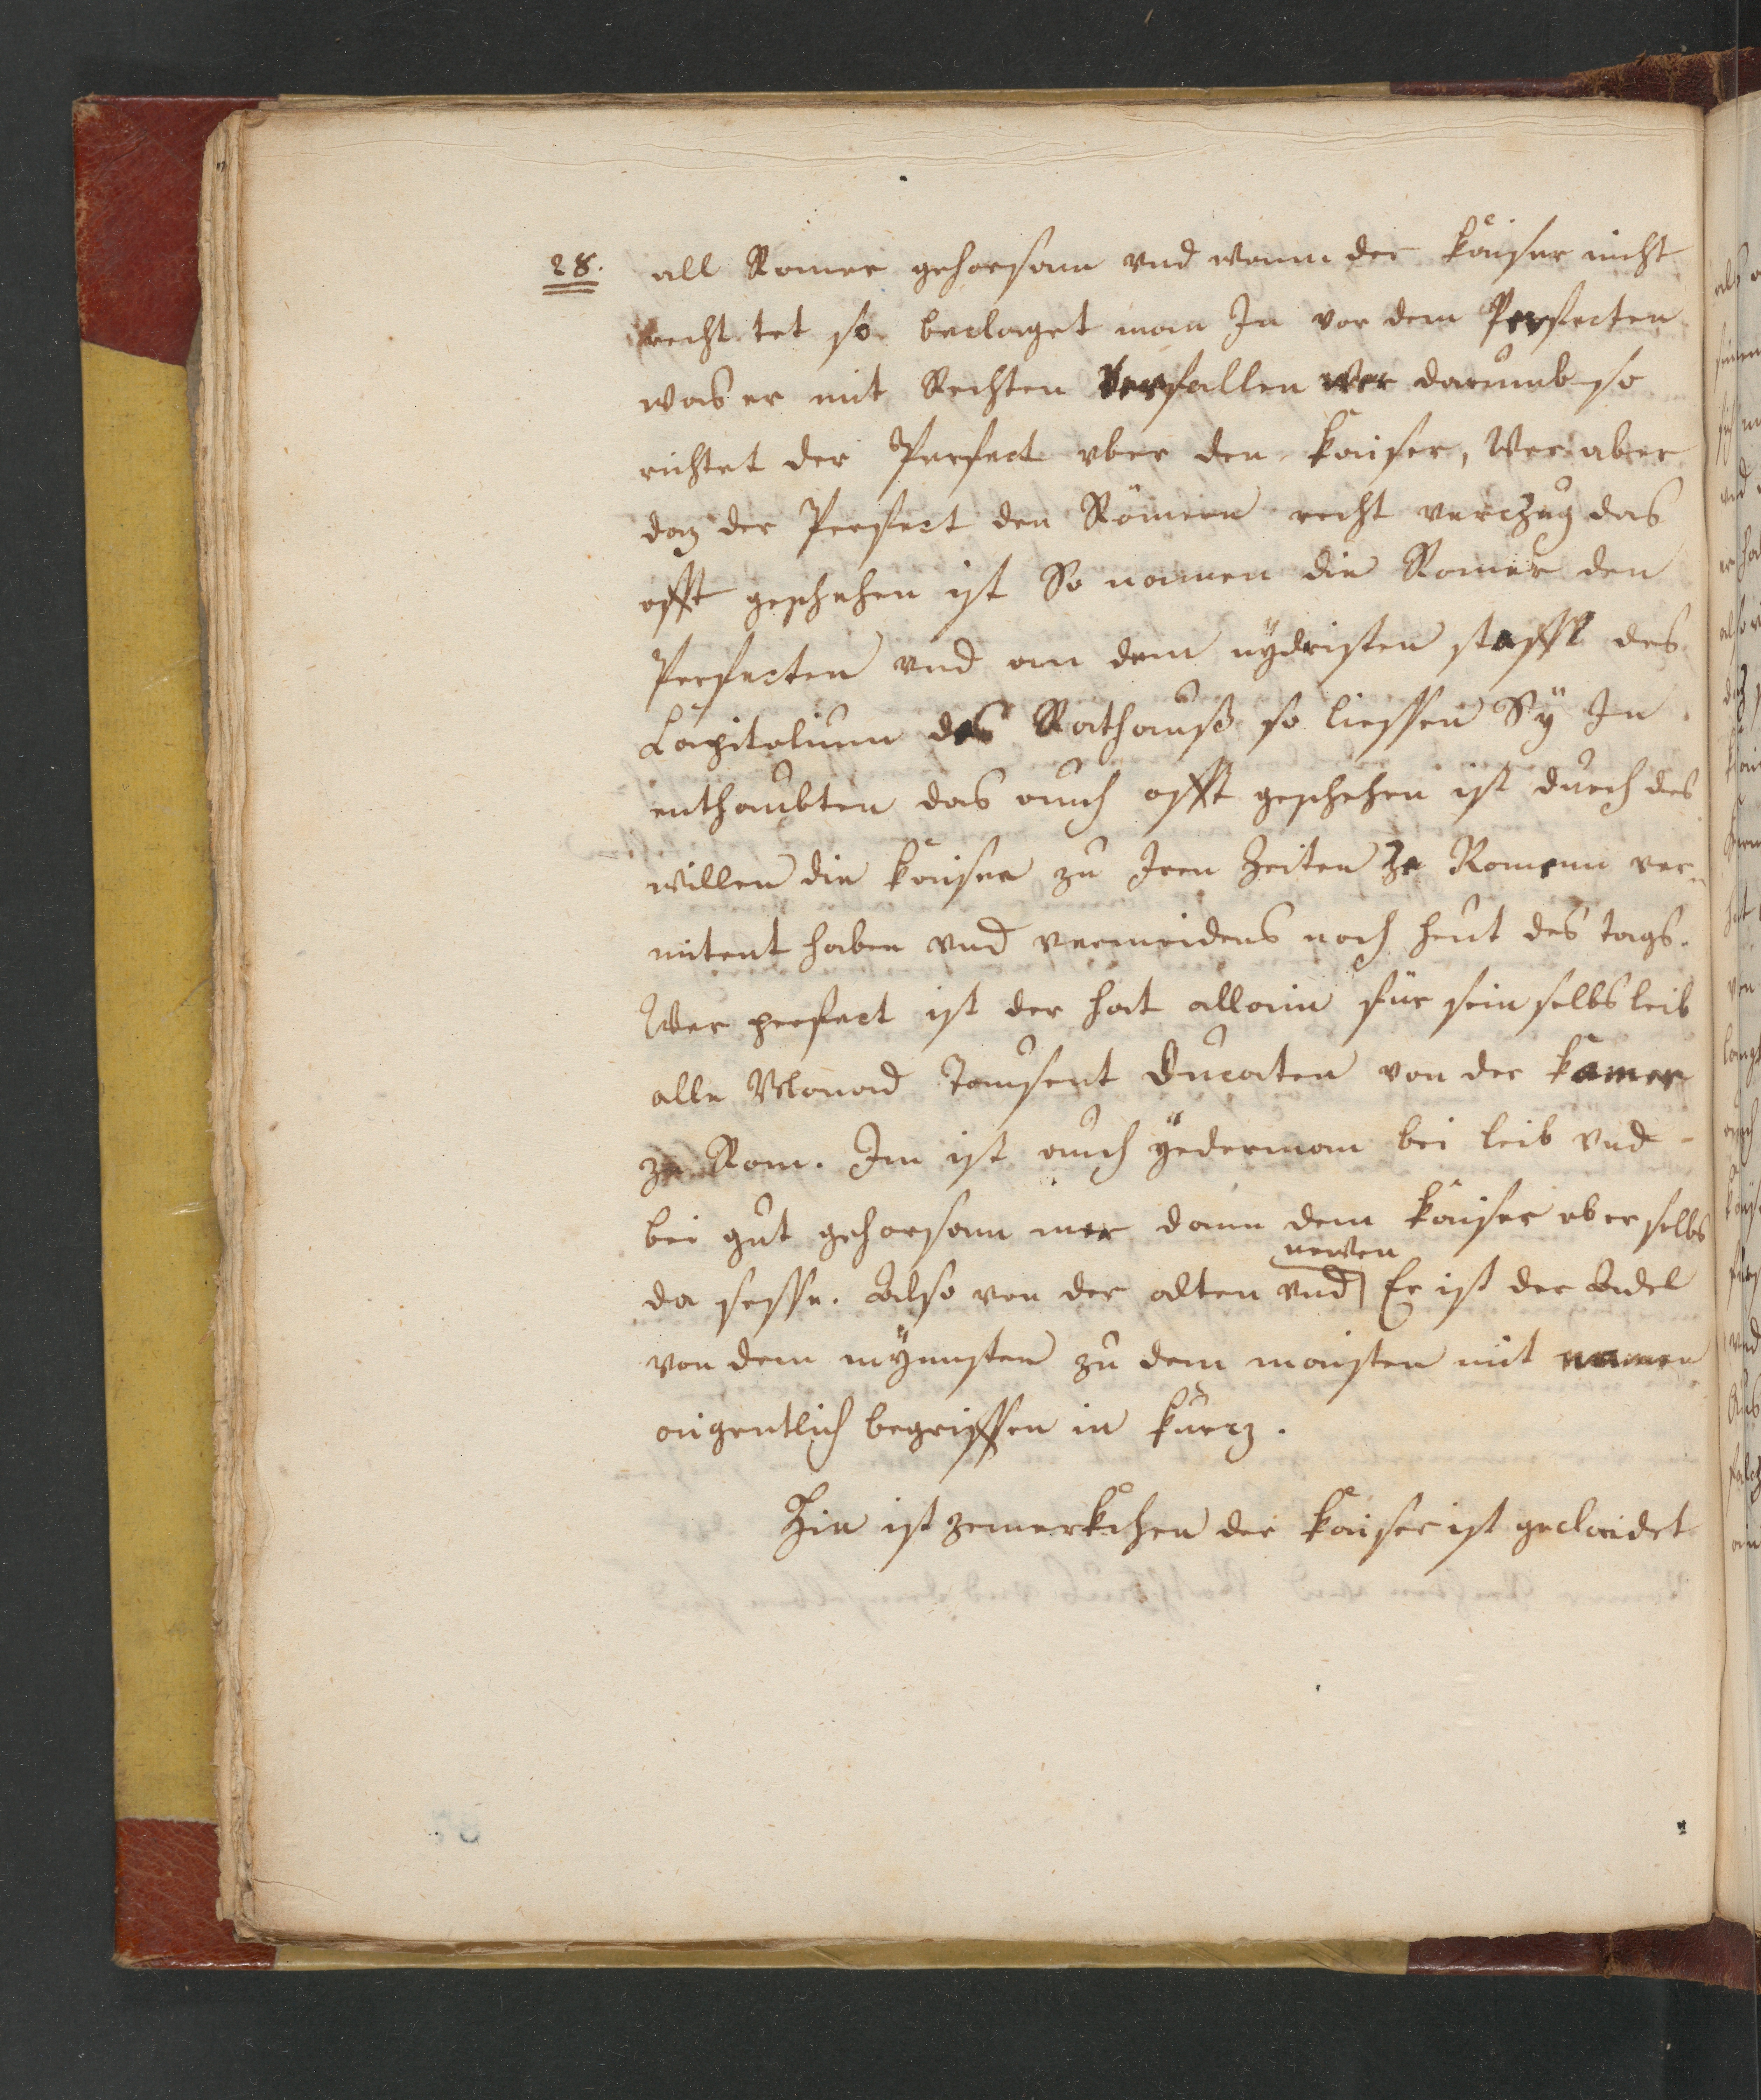 28. all Romer gehorsam vnd wann der kaiser nicht
recht tet so beclaget man In vor dem Perfecten
was er mit Rechten verfallen wer darumb so
richtet der Perfect vber den kaiser, Wer aber
daz der Perfect den Römern recht verczug das
offt geschehen ist So namen die Romer den
Perfecten vnd an dem nÿdristen staffl des
Capitolium des Rathauß so liessen Sÿ In
enthaubten das auch offt geschehen ist durch des
willen die kaiser zu Iren Zeiten ze Romenn ver-
miten haben vnd vermeidens noch heut des tags.
Wer perfect ist der hat allain für sein selbs leib
alle Monad Tausent Ducaten von der kamer
ze Rom. Im ist auch ÿederman bei leib vnd
bei gut gehorsam mer dann dem kaiser ob er selbs
newen
da sesse. Also von der alten vnd Er ist der Adel
von dem mÿnnsten zu dem maisten mit namen
aigentlich begriffen in kurcz.
Hie ist zemerkchen der kaiser ist geclaidet